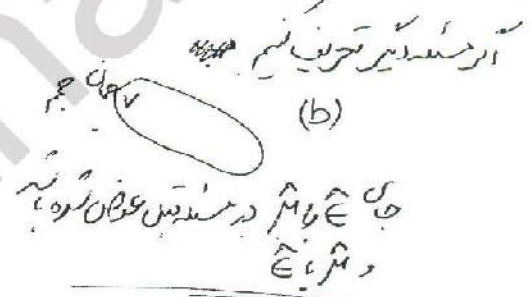 اگر مسئله دیگر تعریف کنیم
(b)
همان حجم V
جای ε̂ و μ̂ در مسئله قبل عوض شده باشد
و μ̂ با ε̂